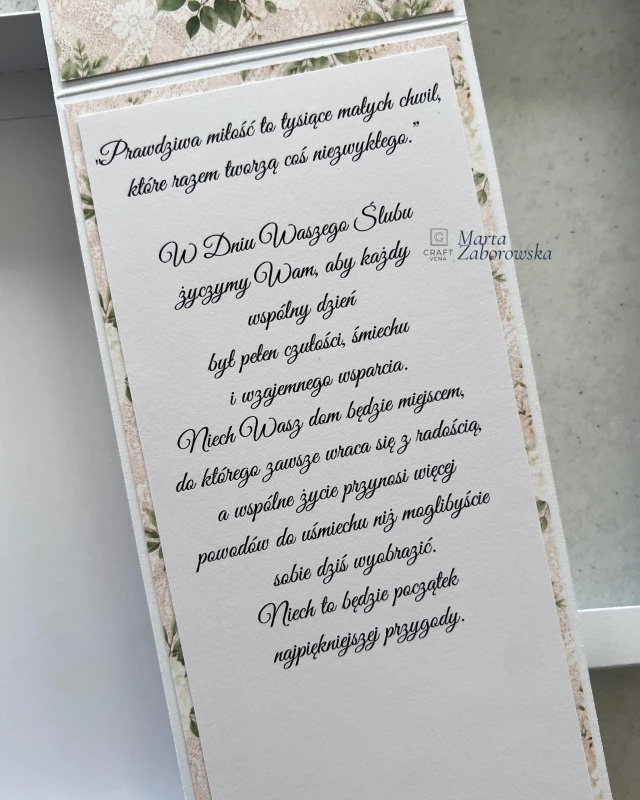 "Prawdziwa miłość to tysiące małych chwil,
które razem tworzą coś niezwykłego."
W Dniu Waszego Ślubu
życzymy Wam, aby każdy
wspólny dzień
był pełen czułości, śmiechu
i wzajemnego wsparcia.
Niech Wasz dom będzie miejscem,
do którego zawsze wraca się z radością,
a wspólne życie przynosi więcej
powodów do uśmiechu niż moglibyście
sobie dziś wyobrazić.
Niech to będzie początek
najpiękniejszej przygody.
G
CRAFT
VENA
Marta
Zaborowska